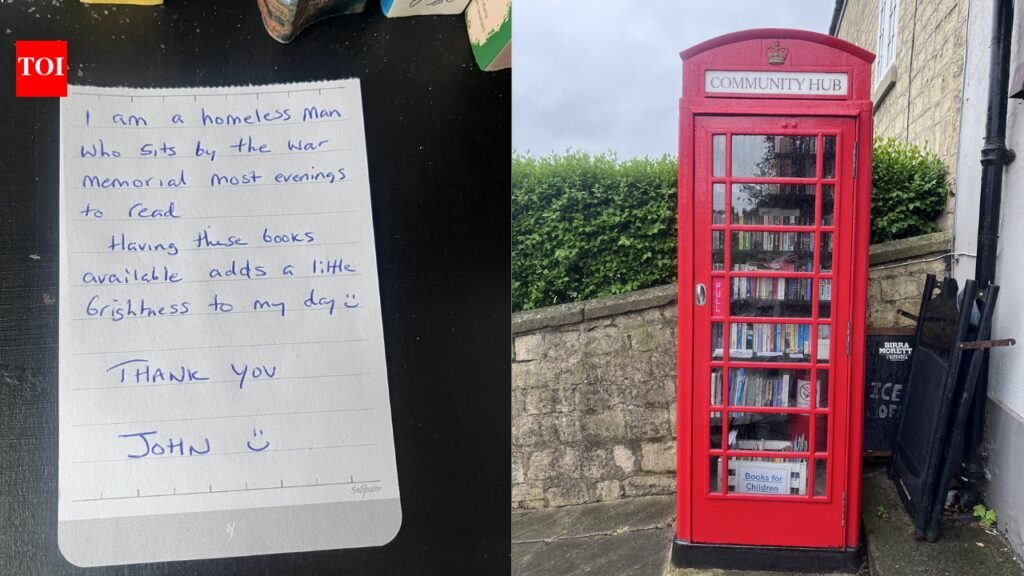 TOI
I am a homeless man
who sits by the war
memorial most evenings
to read
Having these books
available adds a little
brightness to my day
THANK YOU
JOHN
COMMUNITY HUB
PULL
BIRRA
MORETTI
ICE
Books for
Children